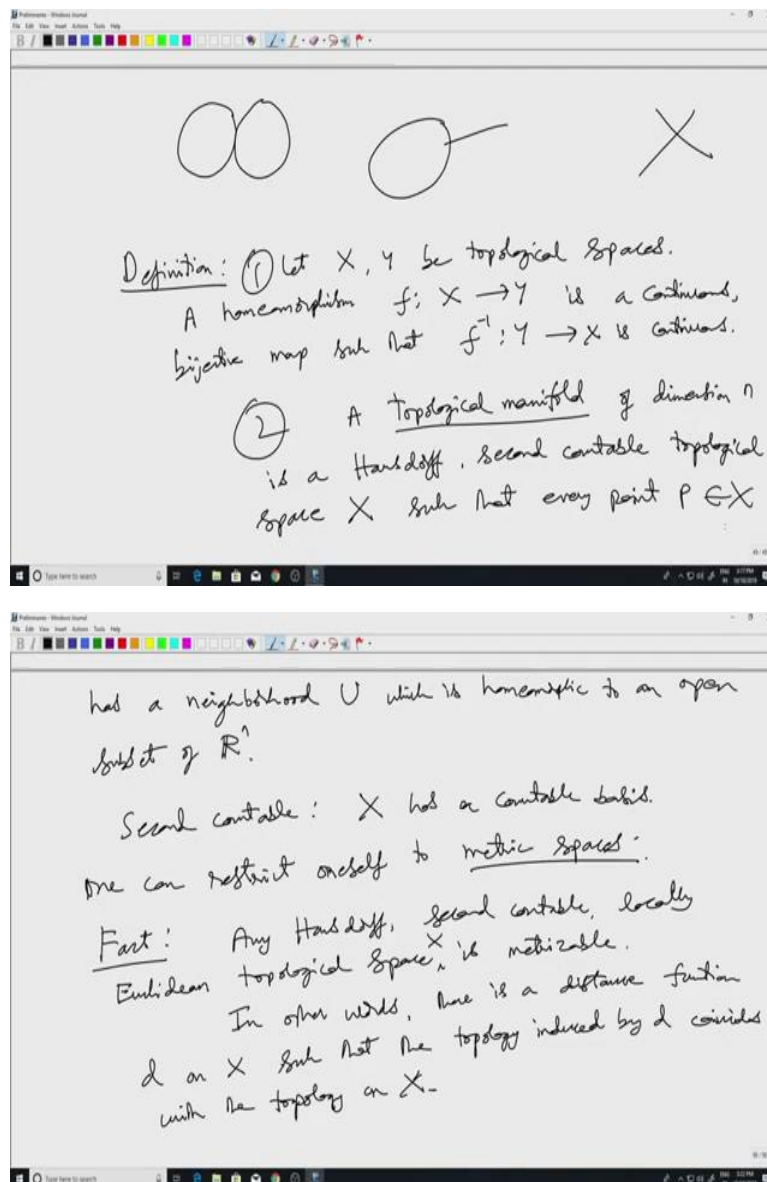 Preliminaries - Windows Journal
File Edit View Insert Actions Tools Help
Definition: ① Let X, Y be topological spaces.
A homeomorphism f: X → Y is a continuous,
bijective map such that f⁻¹: Y → X is continuous.
② A Topological manifold of dimension n
is a Hausdoff, second countable topological
space X such that every point P ∈ X
Type here to search
3:17 PM
Preliminaries - Windows Journal
File Edit View Insert Actions Tools Help
has a neighborhood U which is homeomorphic to an open
subset of ℝⁿ.
Second countable: X has a countable basis.
One can restrict oneself to metric spaces.
Fact: Any Hausdoff, second countable, locally
Euclidean topological space X, is metrizable.
In other words, there is a distance function
d on X such that the topology induced by d coincides
with the topology on X.
Type here to search